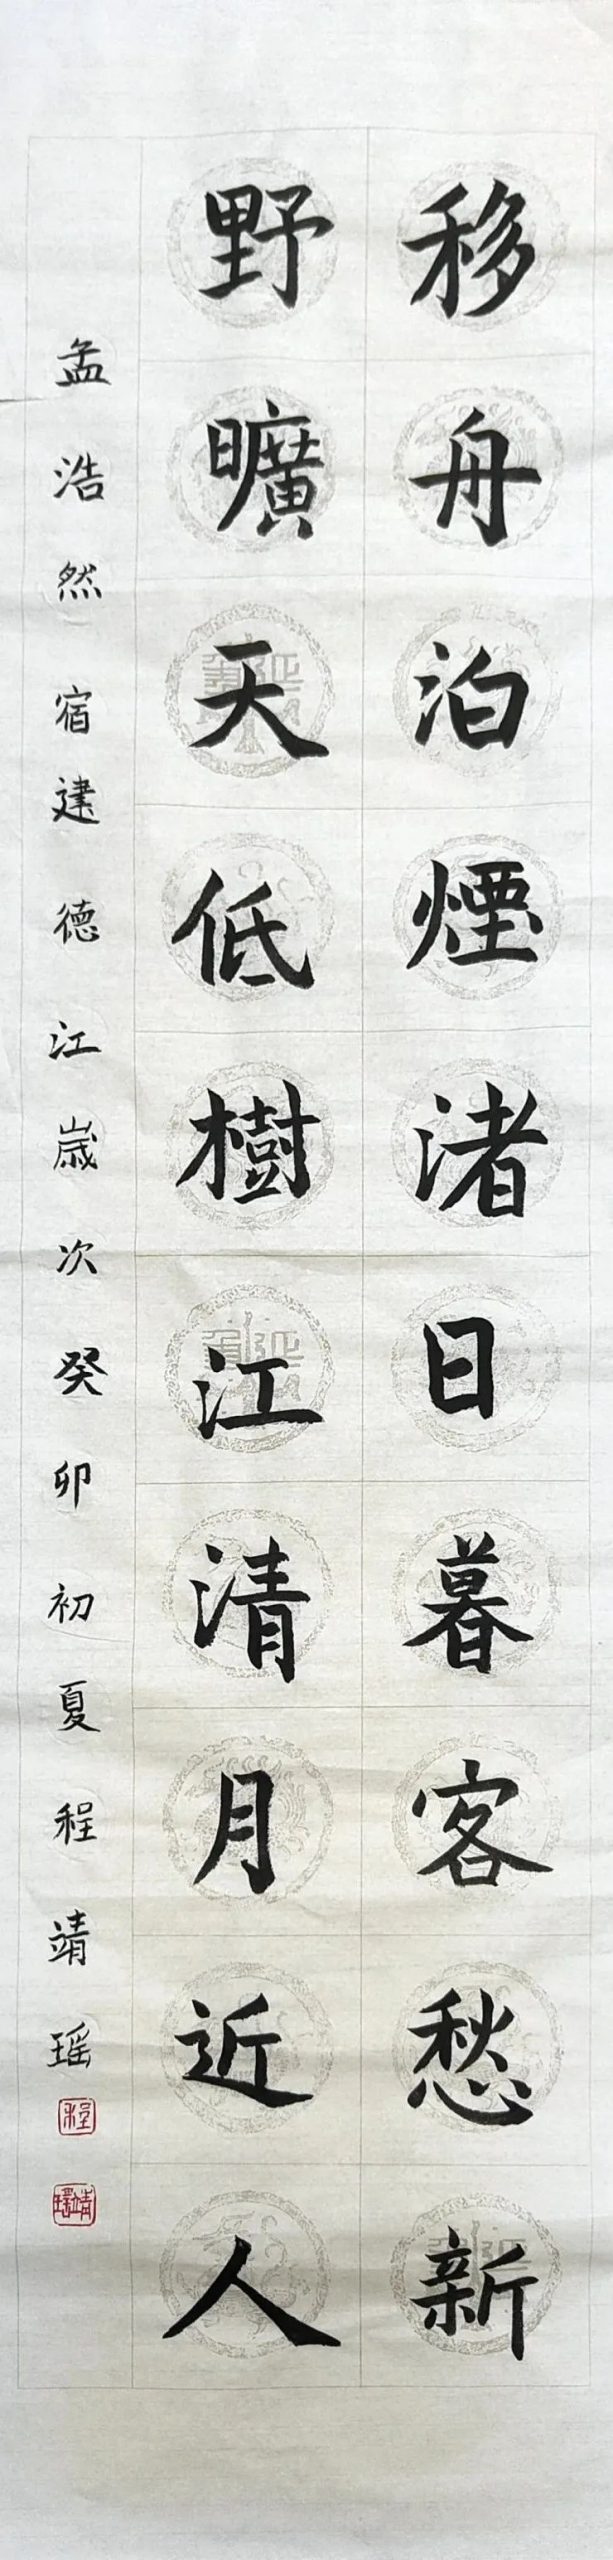 移舟泊煙渚日暮客愁新
野曠天低樹江清月近人
孟浩然宿建德江歲次癸卯初夏程靖瑶
程